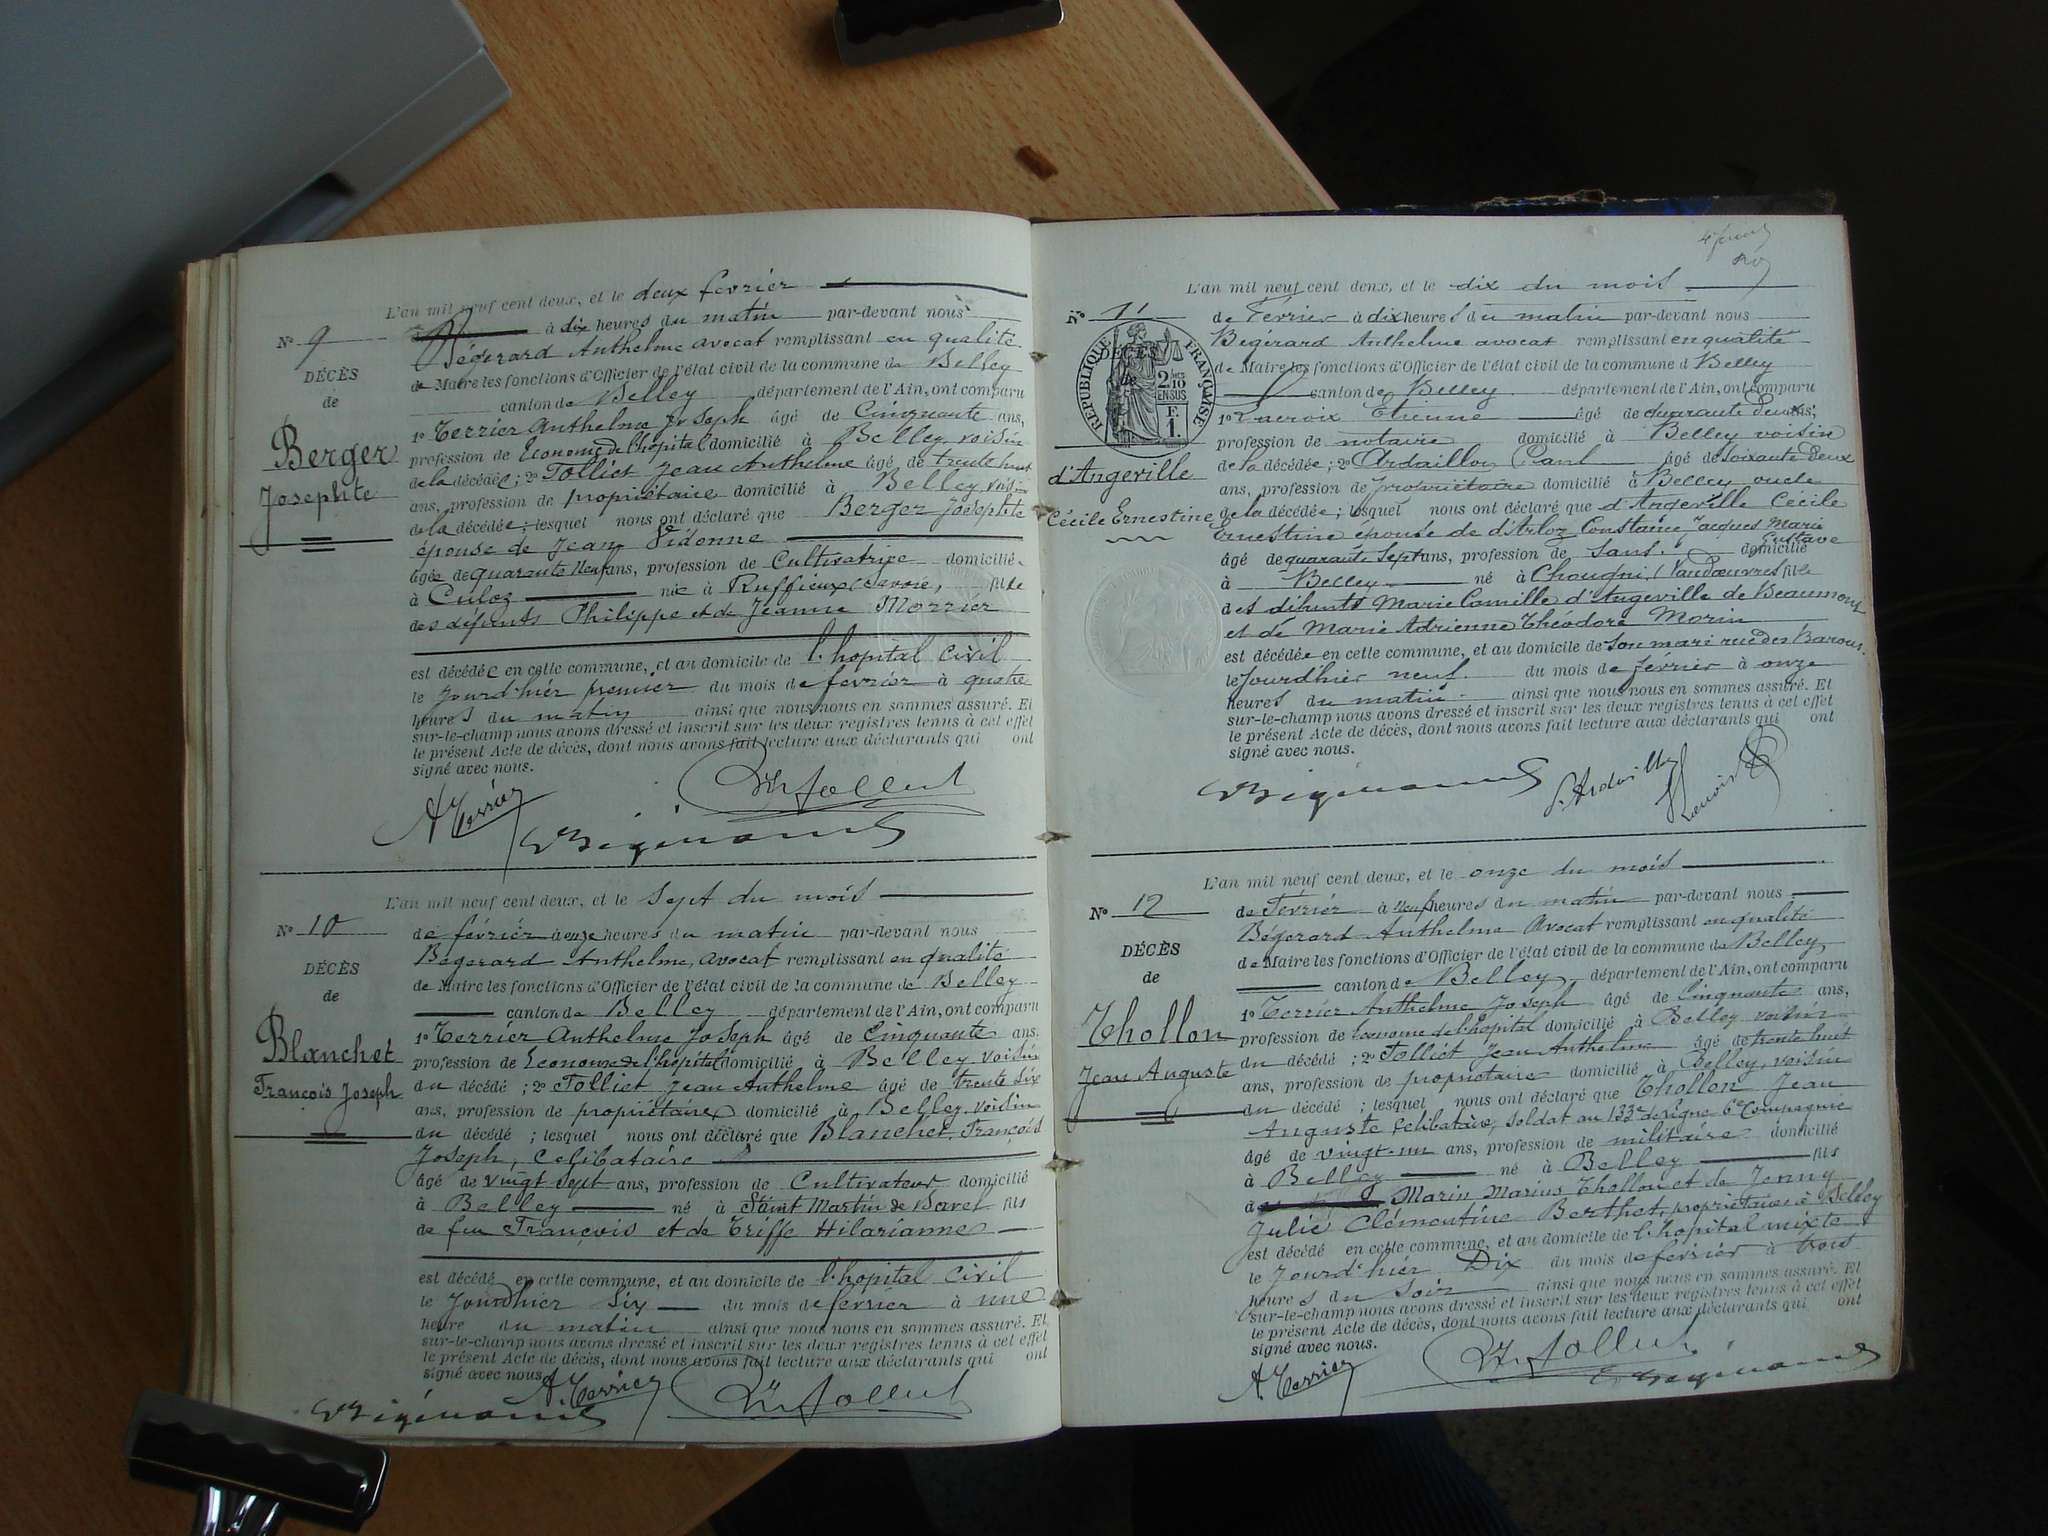 L'an mil neuf cent deux, et le deux février
N° 9
à dix heures du matin par-devant nous
Bégerard Anthelme avocat remplissant en qualité
DÉCÈS
de Maire les fonctions d'Officier de l'état civil de la commune de Belley
de
canton de Belley département de l'Ain, ont comparu
Berger
1° Terrier Anthelme Joseph âgé de Cinquante ans,
profession de Econome de l'hopital domicilié à Belley voisin
Josephte
de la décédée; 2° Tolliet Jean Anthelme âgé de trente huit
ans, profession de propriétaire domicilié à Belley, voisin
de la décédée; lesquel nous ont déclaré que Berger Josephte
épouse de Jean Vidonne
âgée de quarante neuf ans, profession de Cultivatrice domicilié
à Culoz née à Ruffieux (Savoie, fille
des défunts Philippe et de Jeanne Morrier
est décédée en cette commune, et au domicile de l'hopital civil
le jourd'hier premier du mois de fevrier à quatre
heures du matin ainsi que nous nous en sommes assuré. Et
sur-le-champ nous avons dressé et inscrit sur les deux registres tenus à cet effet
le présent Acte de décès, dont nous avons fait lecture aux déclarants qui ont
signé avec nous.
A Terrier
L'an mil neuf cent deux, et le sept du mois
N° 10
de février à onze heures du matin par-devant nous
Bégerard Anthelme, avocat remplissant en qualité
DÉCÈS
de Maire les fonctions d'Officier de l'état civil de la commune de Belley
de
canton de Belley département de l'Ain, ont comparu
Blanchet
1° Terrier Anthelme Joseph âgé de Cinquante ans.
profession de Econome de l'hopital domicilié à Belley voisin
François Joseph
du décédé; 2° Tolliet Jean Anthelme âgé de trente six
ans, profession de propriétaire domicilié à Belley, voisin
du décédé; lesquel nous ont déclaré que Blanchet François
Joseph, Celibataire
âgé de vingt sept ans, profession de Cultivateur domicilié
à Belley né à Saint Martin de Bavel fils
de feu François et de Triffe Hilarianne
est décédé en cette commune, et au domicile de l'hopital civil
le jourd'hier six du mois de février à une
heure du matin ainsi que nous nous en sommes assuré. Et
sur-le-champ nous avons dressé et inscrit sur les deux registres tenus à cet effet
le présent Acte de décès, dont nous avons fait lecture aux déclarants qui ont
signé avec nous.
A. Terrier
L'an mil neuf cent deux, et le dix du mois
N° 11
de Février à dix heures du matin par-devant nous
Bégérard Anthelme avocat remplissant en qualité
RÉPUBLIQUE FRANÇAISE
2 10 EN SUS
F. 1.
DÉCÈS
de
de Maire les fonctions d'Officier de l'état civil de la commune d Belley
canton de Belley département de l'Ain, ont comparu
1° Lacroix Etienne âgé de quarante deux ans;
profession de notaire domicilié à Belley voisin
d'Angeville
de la décédée; 2° Ardaillon Paul âgé de soixante deux
ans, profession de propriétaire domicilié à Belley oncle
Cécile Ernestine
de la décédée; lesquel nous ont déclaré que d'Angeville Cécile
Ernestine épouse de d'Arloz Constance Jacques Marie
Gustave
âgé de quarante sept ans, profession de sans. domicilié
à Belley né à Chougni, (Vandoeuvres fille
des défunts Marie Camille d'Angeville de Beaumont
et de Marie Adrienne Théodore Morin
est décédée en cette commune, et au domicile de son mari rue des Barons.
le jourd'hier neuf. du mois de février à onze
heures du matin ainsi que nous nous en sommes assuré. Et
sur-le-champ nous avons dressé et inscrit sur les deux registres tenus à cet effet
le présent Acte de décès, dont nous avons fait lecture aux déclarants qui ont
signé avec nous.
L'an mil neuf cent deux, et le onze du mois
N° 12
de Février à neuf heures du matin par-devant nous
Bégerard Anthelme Avocat remplissant en qualité
DÉCÈS
de Maire les fonctions d'Officier de l'état civil de la commune de Belley
de
canton de Belley, département de l'Ain, ont comparu
Thollon
1° Terrier Anthelme Joseph âgé de Cinquante ans,
profession de Econome de l'hopital domicilié à Belley voisin
Jean Auguste
du décédé; 2° Tolliet Jean Anthelme âgé de trente huit
ans, profession de propriétaire domicilié à Belley, voisin
du décédé; lesquel nous ont déclaré que Thollon Jean
Auguste celibataire, soldat au 133e de ligne 6e Compagnie
âgé de vingt-un ans, profession de militaire domicilié
à Belley né à Belley fils
de Marin Marius Thollon et de Jenny
Julie Clémentine Berthet, propriétaires à Belley
est décédé en cette commune, et au domicile de l'hopital mixte
le jourd'hier Dix du mois de fevrier à trois
heures du soir ainsi que nous nous en sommes assuré. Et
sur-le-champ nous avons dressé et inscrit sur les deux registres tenus à cet effet
le présent Acte de décès, dont nous avons fait lecture aux déclarants qui ont
signé avec nous.
A. Terrier